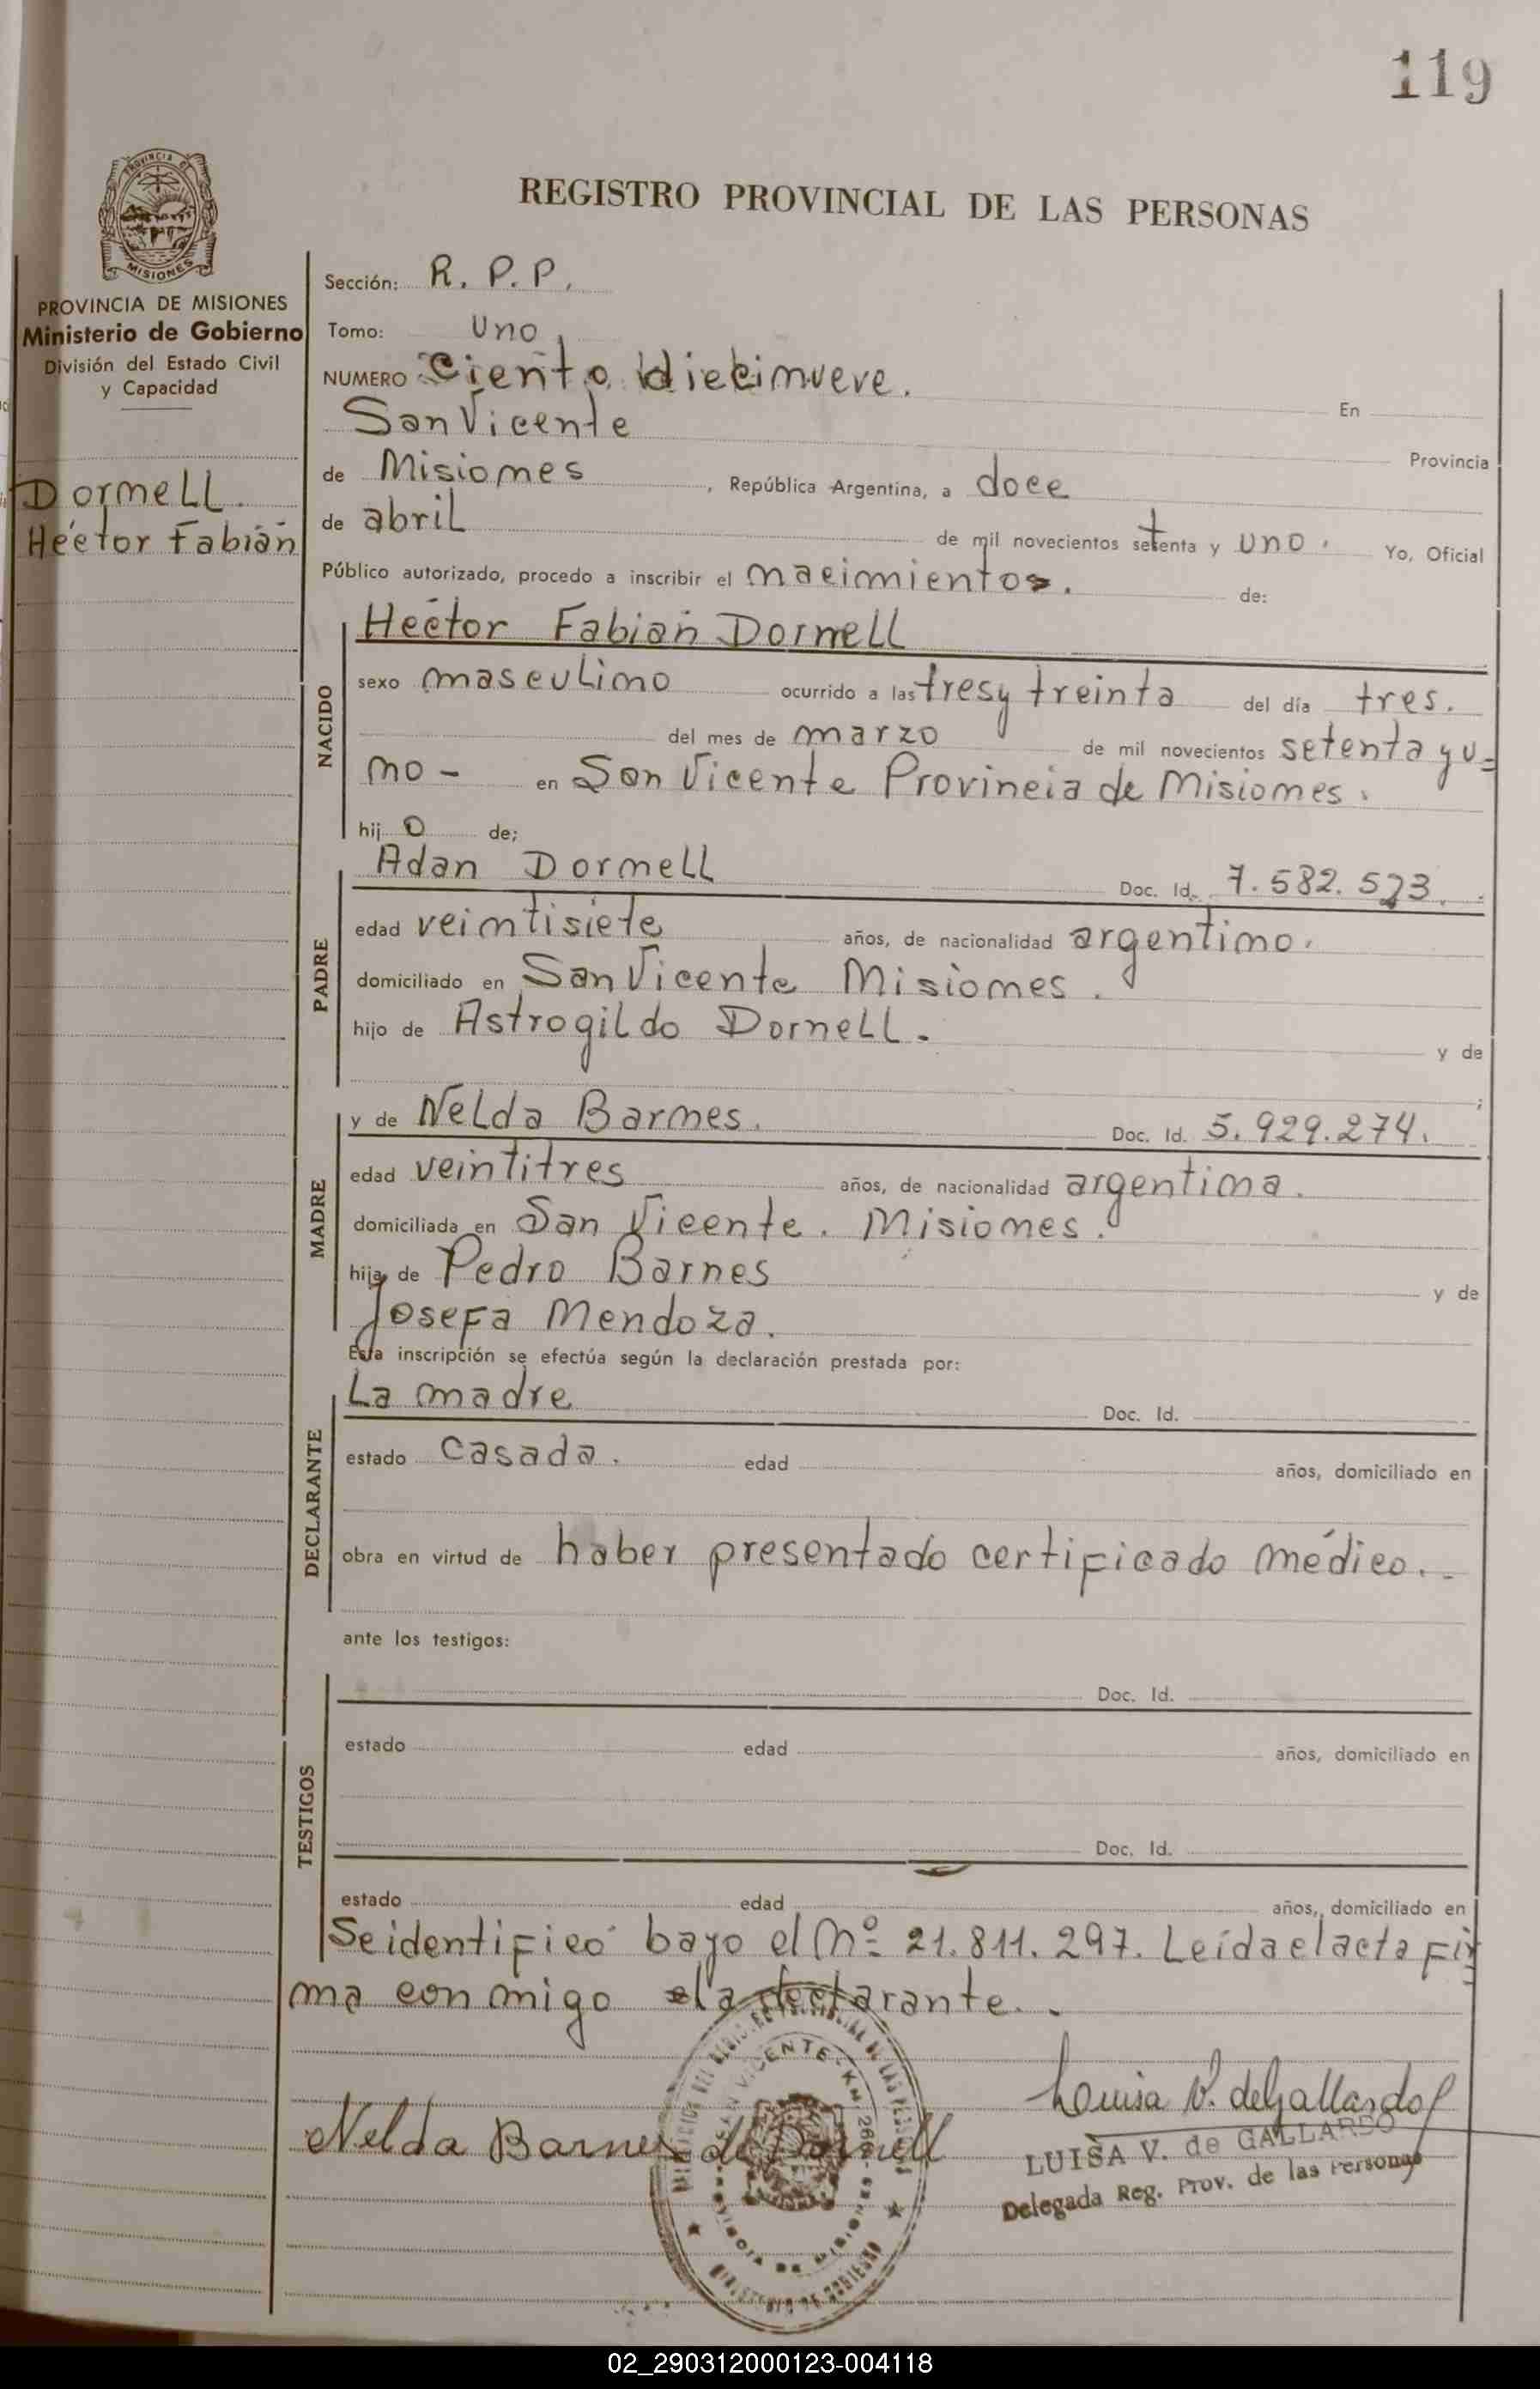 119
PROVINCIA DE
MISIONES
PROVINCIA DE MISIONES
Ministerio de Gobierno
División del Estado Civil
y Capacidad
Dornell.
Héctor Fabián
REGISTRO PROVINCIAL DE LAS PERSONAS
Sección: R. P. P.
Tomo: Uno
NUMERO Ciento diecinueve. En
San Vicente Provincia
de Misiones, República Argentina, a doce
de abril de mil novecientos setenta y uno. Yo, Oficial
Público autorizado, procedo a inscribir el nacimiento. de:
NACIDO
Héctor Fabián Dornell
sexo masculino ocurrido a las tres y treinta del día tres.
del mes de marzo de mil novecientos setenta y u=
no - en San Vicente Provincia de Misiones.
hijo de;
PADRE
Adan Dornell Doc. Id. 7.582.523.
edad veintisiete años, de nacionalidad argentino.
domiciliado en San Vicente Misiones.
hijo de Astrogildo Dornell. y de
;
MADRE
y de Nelda Barnes. Doc. Id. 5.929.274.
edad veintitres años, de nacionalidad argentina.
domiciliada en San Vicente. Misiones.
hija de Pedro Barnes y de
Josefa Mendoza.
Esta inscripción se efectúa según la declaración prestada por:
DECLARANTE
La madre Doc. Id.
estado casada. edad años, domiciliado en
obra en virtud de haber presentado certificado médico..
ante los testigos:
TESTIGOS
Doc. Id.
estado edad años, domiciliado en
Doc. Id.
estado edad años, domiciliado en
Se identificó bajo el Nº 21.811.297. Leída el acta fir
ma conmigo la declarante.
Nelda Barnes de Dornell
Luisa V. de Gallardo
LUISA V. de GALLARDO
Delegada Reg. Prov. de las Personas
MINISTERIO DE GOBIERNO
02_290312000123-004118